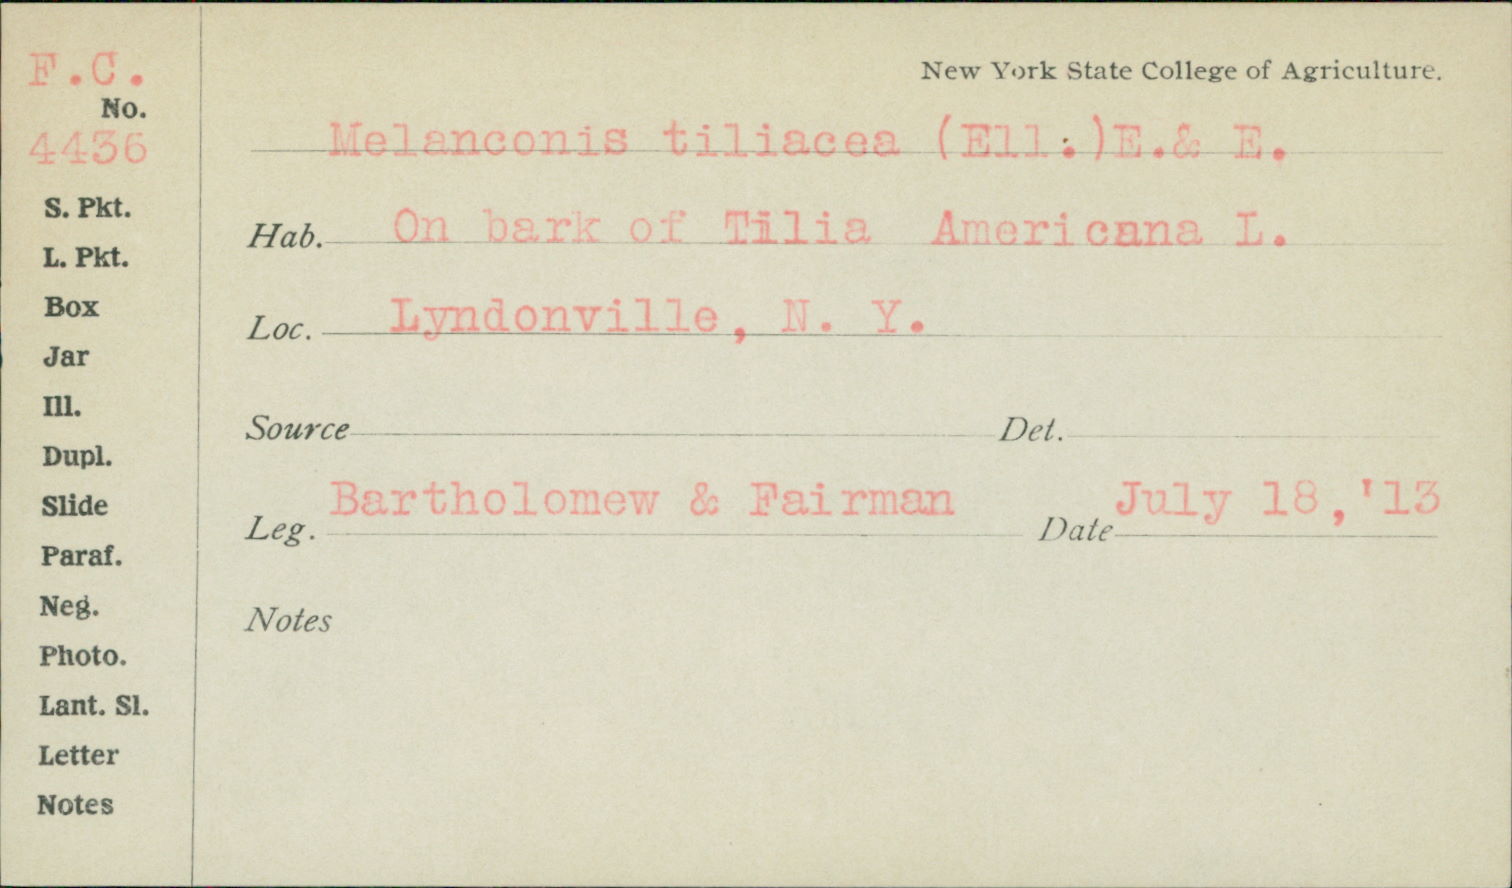 F.C.
No.
4436
S. Pkt.
L. Pkt.
Box
Jar
Ill.
Dupl.
Slide
Paraf.
Neg.
Photo.
Lant. Sl.
Letter
Notes
New York State College of Agriculture.
Melanconis tiliacea (Ell.)E.& E.
Hab. On bark of Tilia Americana L.
Loc. Lyndonville, N. Y.
Source Det.
Leg. Bartholomew & Fairman Date July 18,'13
Notes